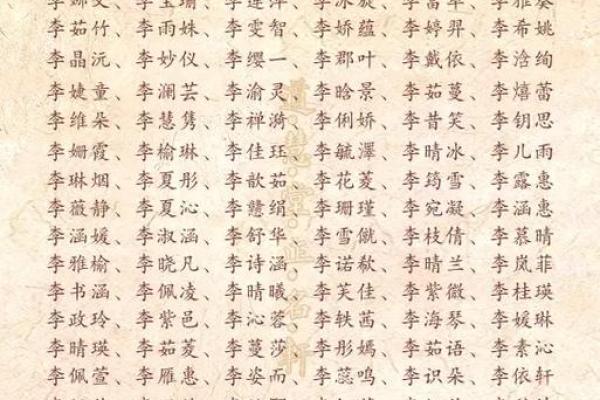 李茹竹、李雨姝、李雯智、李娇蕴、李婷羿、李希姚
李晶沅、李妙仪、李缨一、李郡叶、李戴依、李浛绚
李婕童、李澜芸、李渝灵、李晗景、李茹蔓、李熺蕾
李维朵、李慧隽、李禅漪、李俐娇、李昔笑、李钥思
李姗霞、李榆琳、李佳珏、李毓泽、李晴冰、李儿雨
李琳烟、李夏彤、李歆茹、李花菱、李筠雪、李露惠
李薇静、李夏沁、李慧绢、李珊瑾、李宛凝、李涵惠
李涵媛、李淑涵、李舒华、李雪僦、李枝倩、李慕晴
李雅榆、李晓凡、李诗涵、李诺欷、李晴兰、李岚菲
李书涵、李佩凌、李晴曦、李芙佳、李紫微、李桂瑛
李政玲、李紫邑、李沁蓉、李轶茜、李海琴、李媛琳
李晴瑛、李茹菱、李蔓莎、李彤嫣、李茹语、李素沁
李佩萱、李雁惠、李姿而、李蕊鸣、李识朵、李依轩